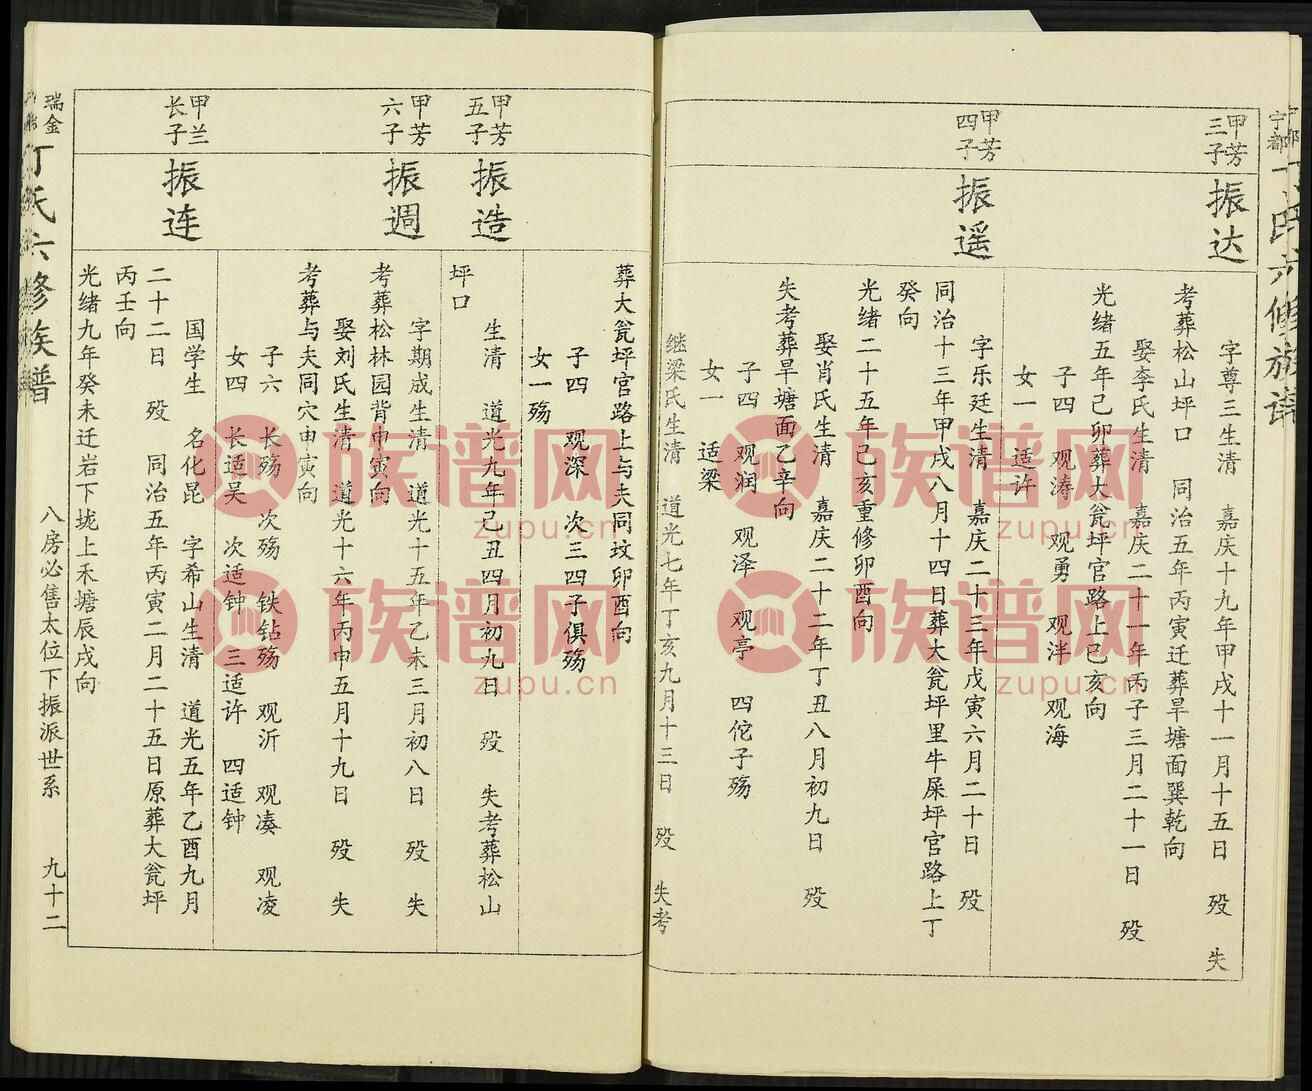 宁都
甲芳三子
振达
字尊三生清 嘉庆十九年甲戌十一月十五日 殁 失
考葬松山坪口 同治五年丙寅迁葬旱塘面巽乾向
娶李氏生清 嘉庆二十一年丙子三月二十一日 殁
光绪五年己卯葬大瓮坪官路上巳亥向
子四 观涛 观勇 观泮 观海
女一 适许
甲芳四子
振遥
字乐廷生清 嘉庆二十三年戊寅六月二十日 殁
同治十三年甲戌八月十四日葬大瓮坪里牛屎坪官路上丁
癸向
光绪二十五年己亥重修卯酉向
娶肖氏生清 嘉庆二十二年丁丑八月初九日 殁
失考葬旱塘面乙辛向
子四 观润 观泽 观亭 四佗子殇
女一 适梁
继梁氏生清 道光七年丁亥九月十三日 殁 失考
葬大瓮坪官路上与夫同坟卯酉向
子四 观深 次三四子俱殇
女一殇
甲芳五子
振造
生清 道光九年己丑四月初九日 殁 失考葬松山
坪口
甲芳六子
振週
字期成生清 道光十五年乙未三月初八日 殁 失
考葬松林园背申寅向
娶刘氏生清 道光十六年丙申五月十九日 殁 失
考葬与夫同穴申寅向
子六 长殇 次殇 铁钻殇 观沂 观凑 观凌
女四 长适吴 次适钟 三适许 四适钟
甲兰长子
振连
国学生 名化昆 字希山生清 道光五年乙酉九月
二十二日 殁 同治五年丙寅二月二十五日原葬大瓮坪
丙壬向
光绪九年癸未迁岩下垅上禾塘辰戌向
瑞金
丁氏六修族谱
八房必售太位下振派世系 九十二
族谱网
zupu.cn
族谱网
zupu.cn
族谱网
zupu.cn
族谱网
zupu.cn